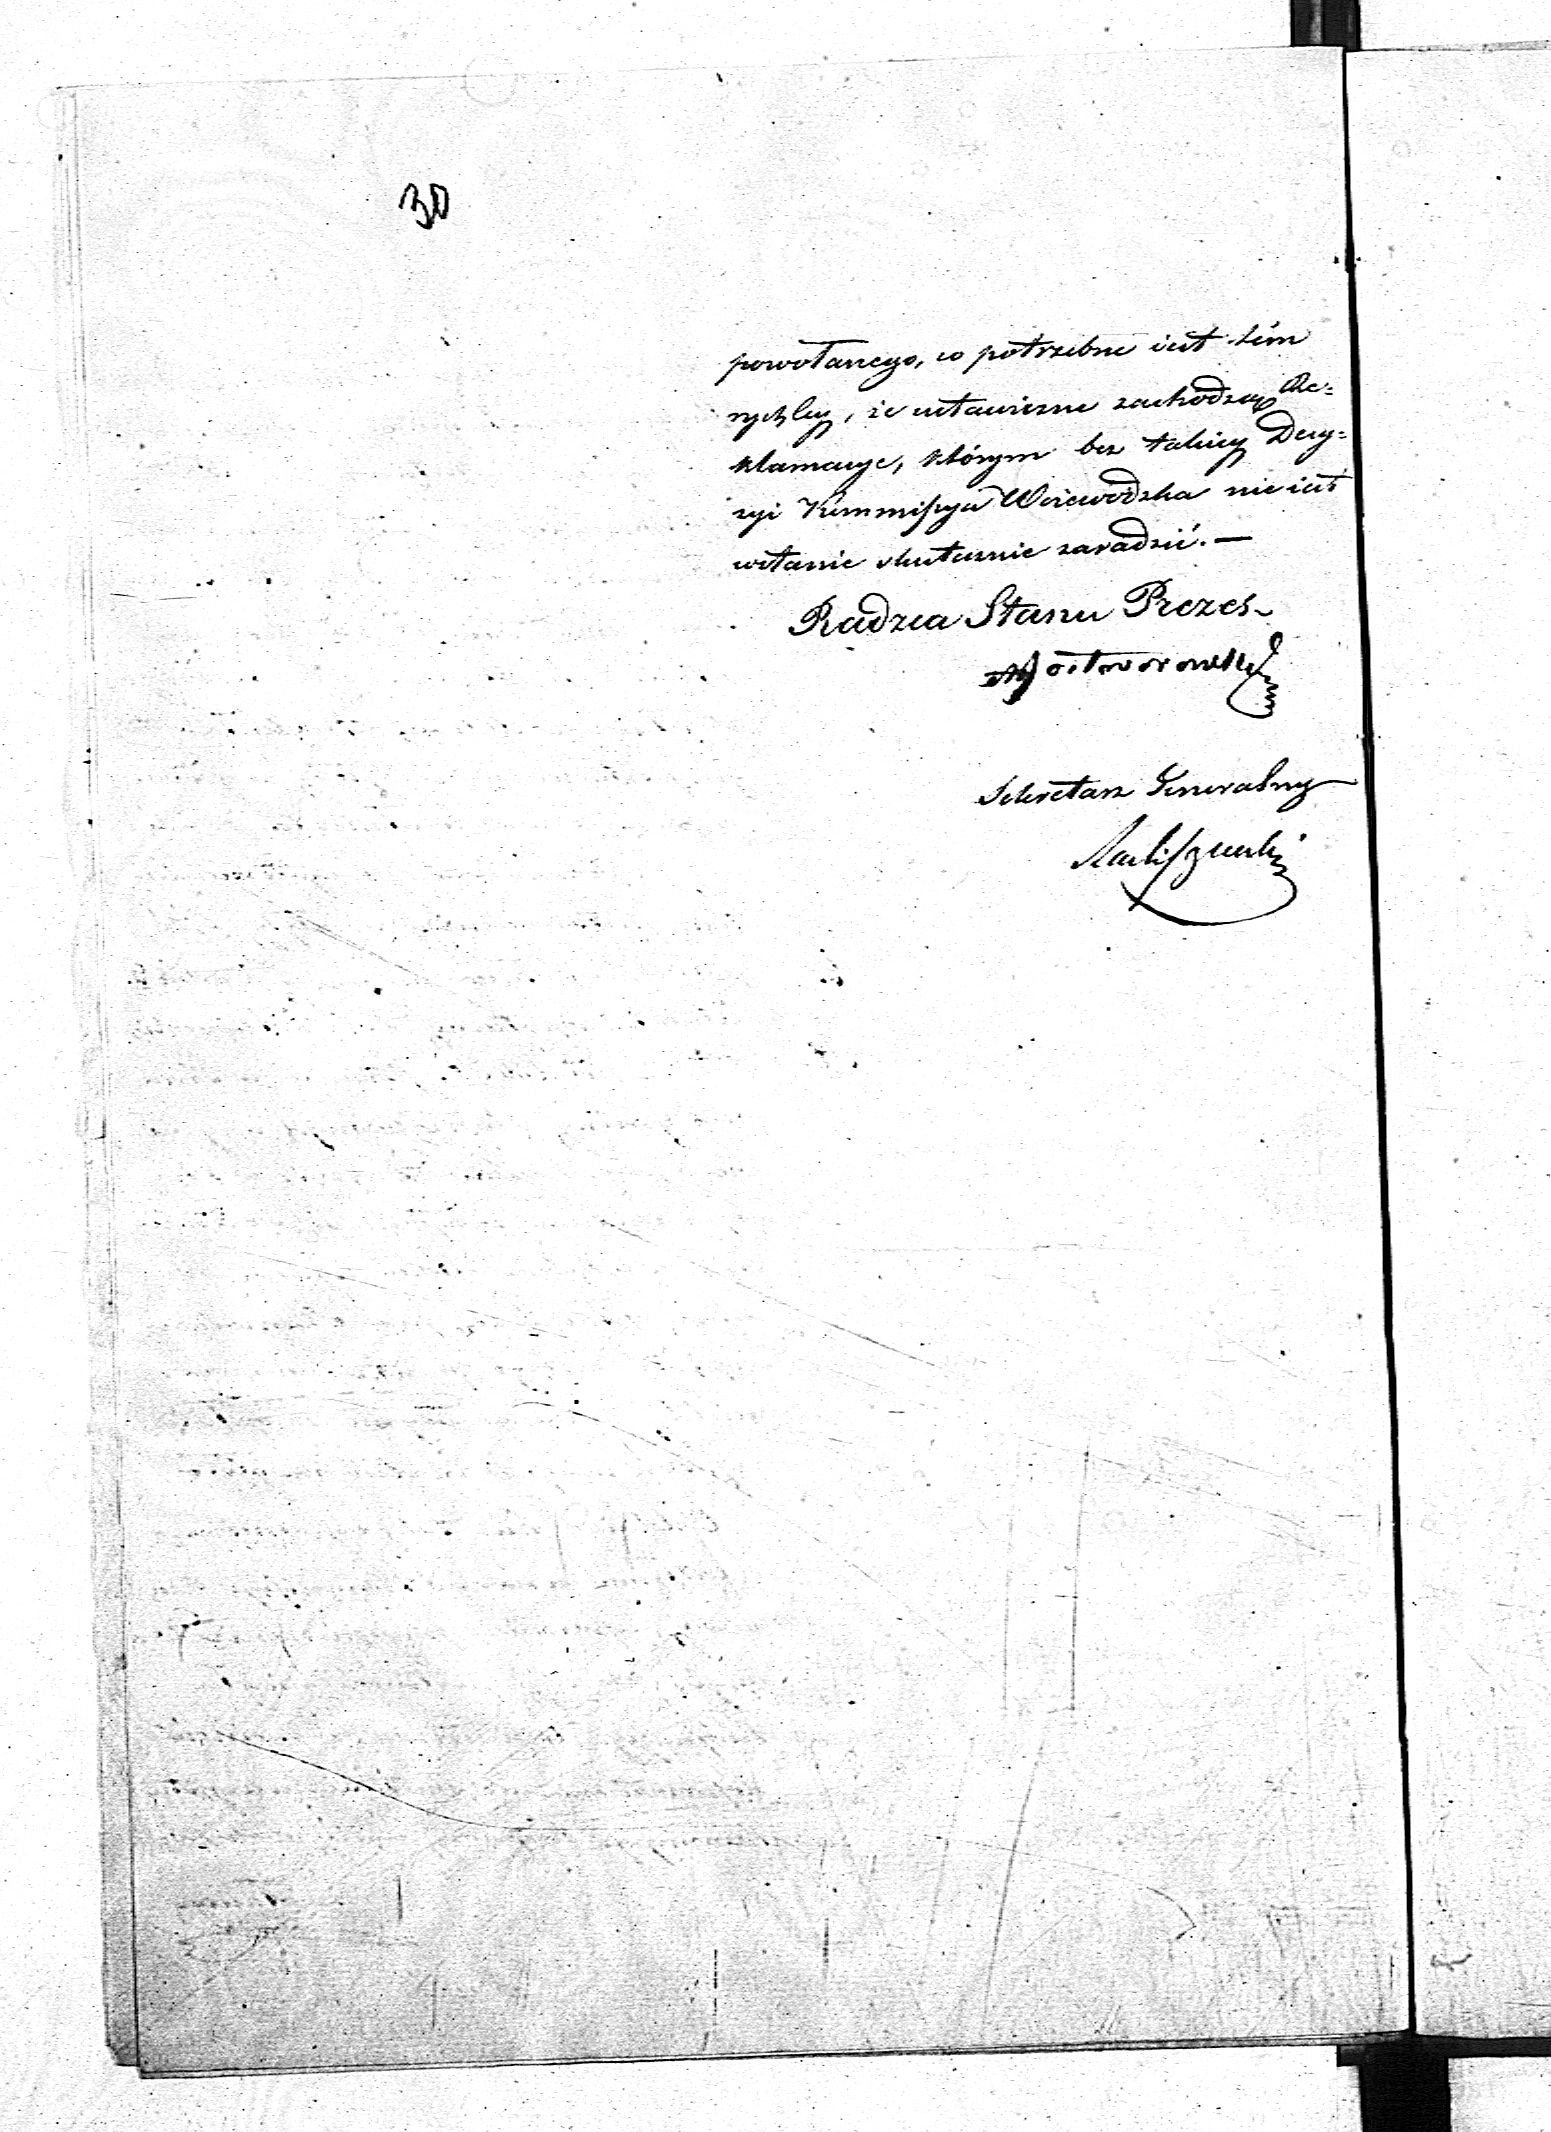 30
powołanego, co potrzebne iest tém
rychley, że ustawiczne zachodzą Re=
klamacye, którym bez takiey Decy=
zyi Kommissya Woiewodzka nie iest
wstanie skutecznie zaradzić. —
Radzca Stanu Prezes
Mostworowski
Sekretarz Generalny